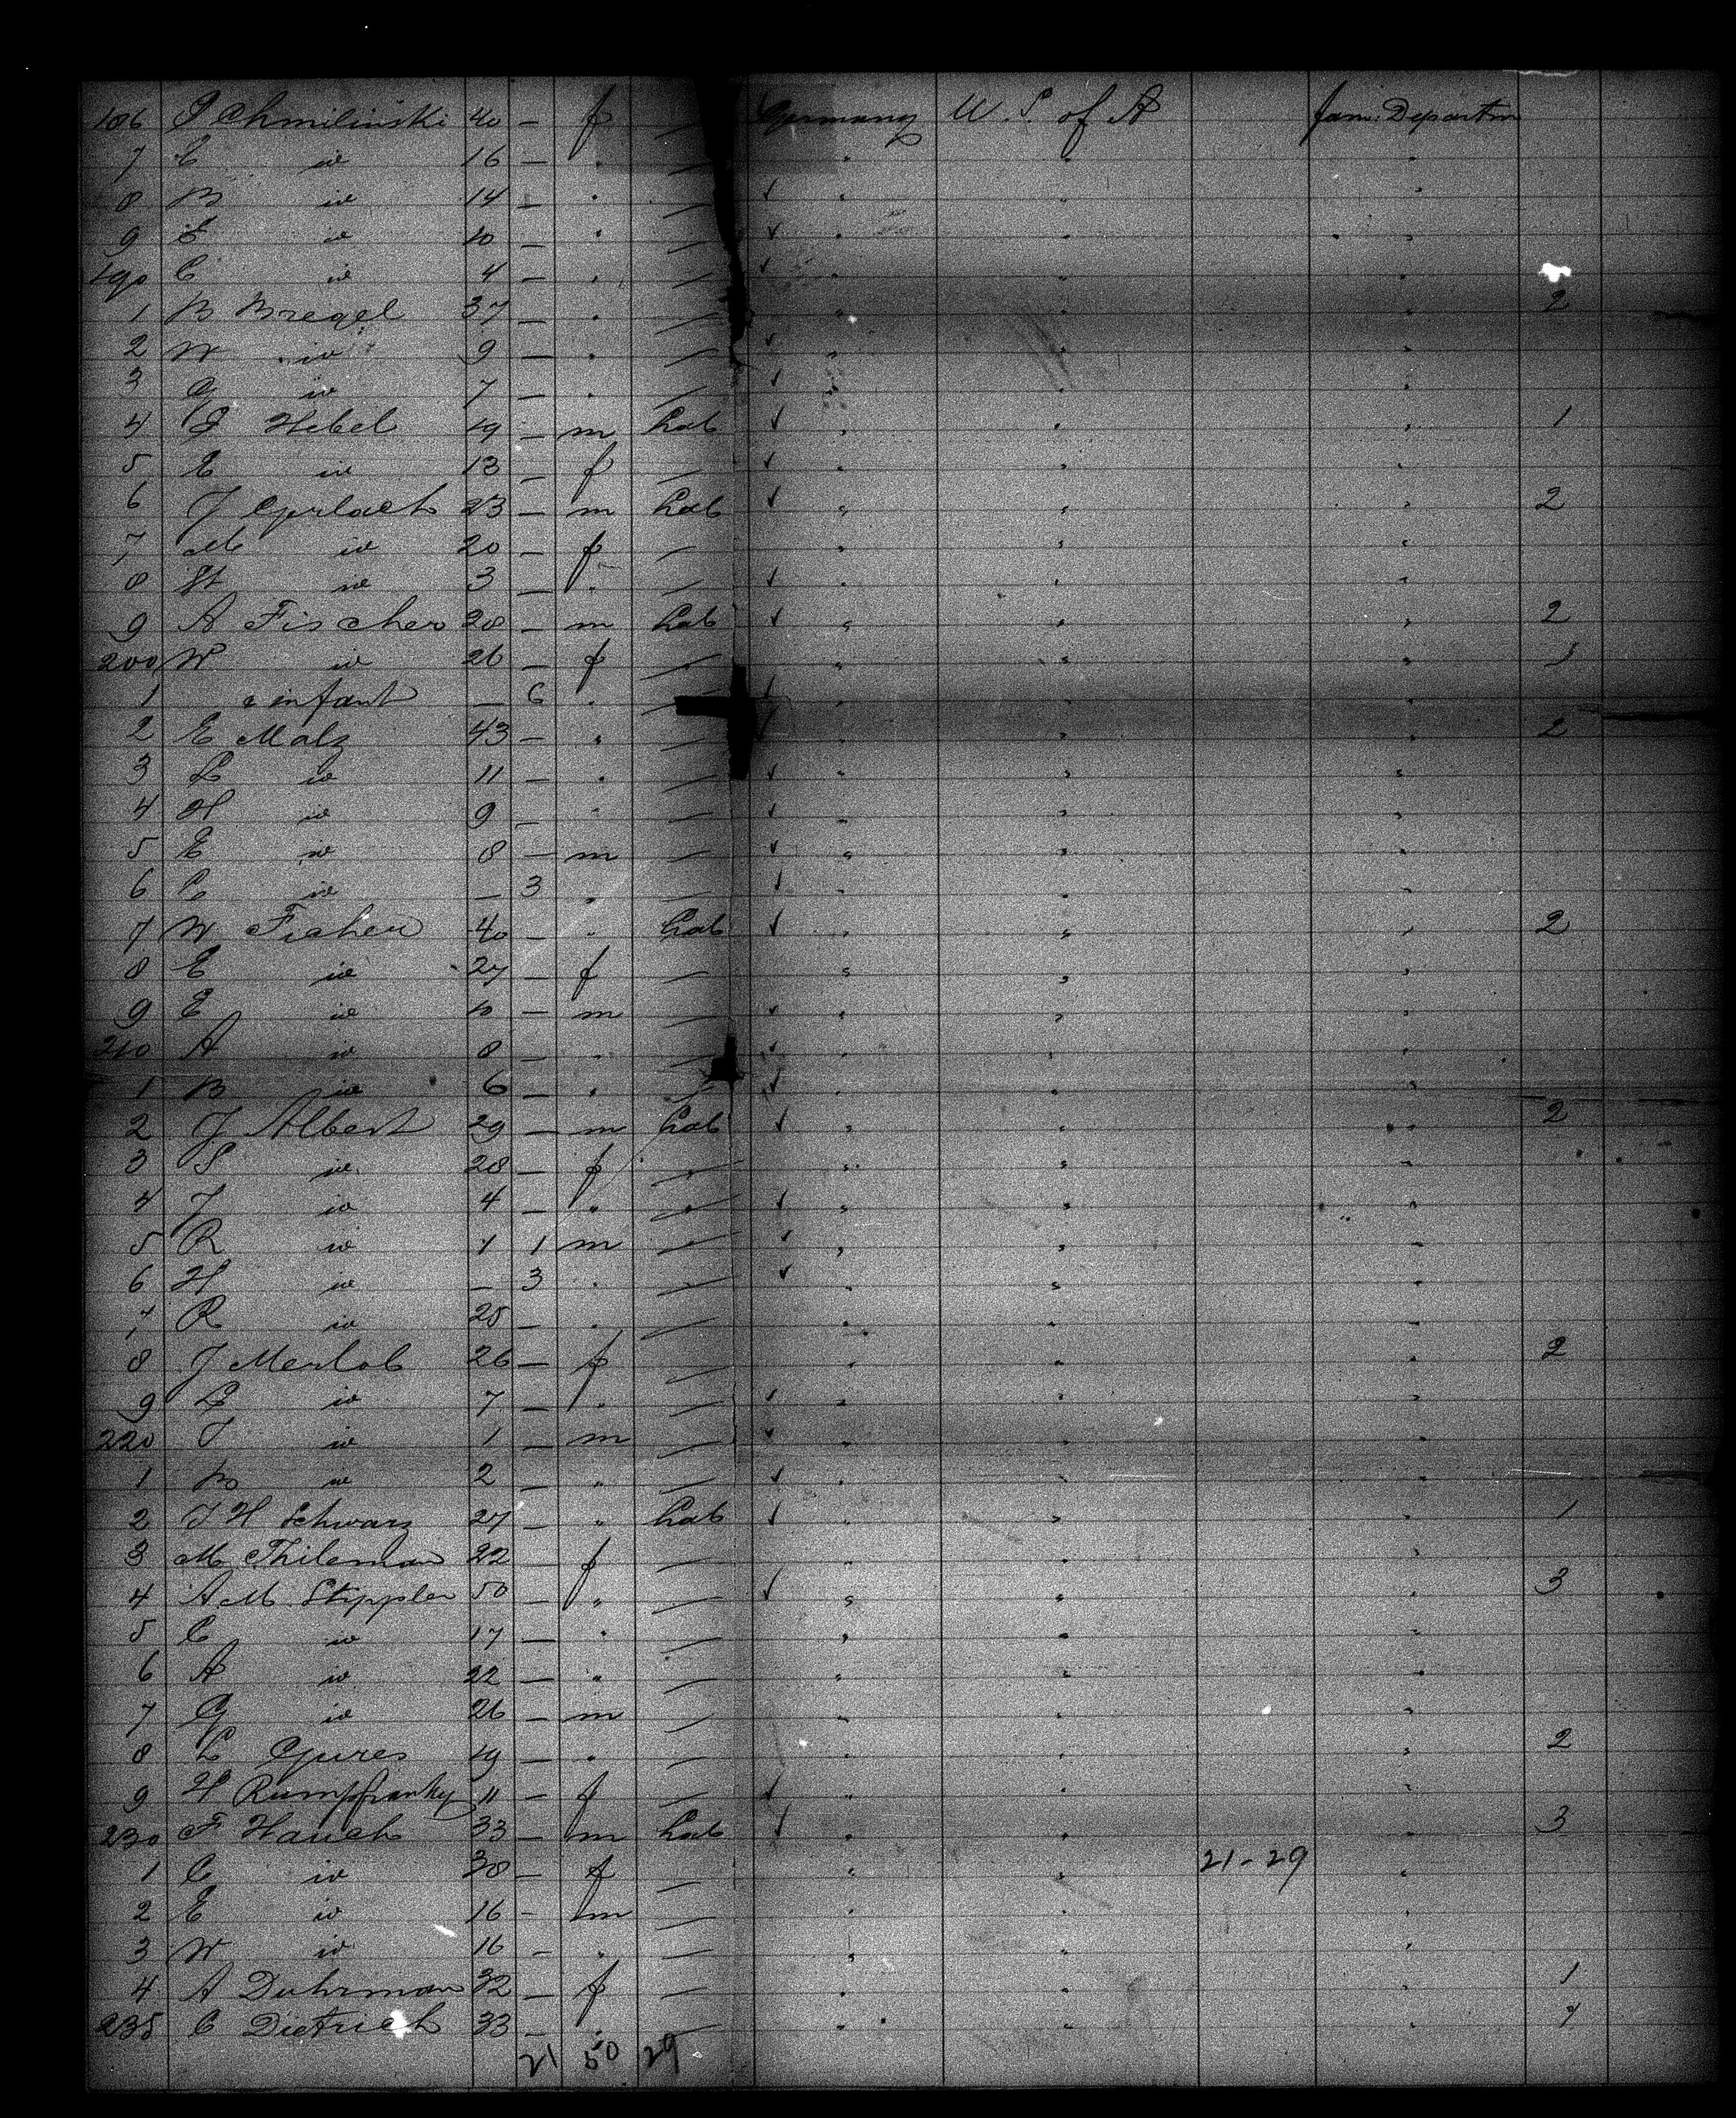 186 P Chmilinski 40 — f — Germany U. S. of A fam: Departm
7 E " 16 — " — " " "
8 B " 14 — " — ✓ " " "
9 E " 10 — " — ✓ " " "
190 C " 4 — " — ✓ " " "
1 B Bregel 37 — " — " " " 2
2 W " 9 — " — ✓ " " "
3 G " 7 — " — ✓ " " "
4 J Hebel 19 — m Lab ✓ " " " 1
5 E " 13 — f — ✓ " " "
6 J Gerlach 23 — m Lab ✓ " " " 2
7 M " 20 — f — " " "
8 St " 3 — " — ✓ " " "
9 A Fischer 28 — m Lab ✓ " " " 2
200 W " 26 — f — " " " 1
1 & infant — 6 " — ✓ " " "
2 E Malz 43 — " — ✓ " " " 2
3 L " 11 — " — ✓ " " "
4 H " 9 — " — ✓ " " "
5 E " 8 — m — ✓ " " "
6 C " — 3 " — ✓ " " "
7 W Fisher 40 — " Lab ✓ " " " 2
8 E " 27 — f — " " "
9 E " 10 — m — ✓ " " "
210 A " 8 — " — ✓ " " "
1 B " 6 — " — ✓ " " "
2 J Albert 29 — m Lab ✓ " " " 2
3 S " 28 — f — " " "
4 J " 4 — " — ✓ " " "
5 R " 1 1 m — ✓ " " "
6 H " — 3 " — ✓ " " "
7 R " 25 — " — " " "
8 J Merlob 26 — f — " " " 2
9 L " 7 — " — ✓ " " "
220 J " 1 — m — ✓ " " "
1 B " 2 — " — ✓ " " "
2 J H Schwarz 27 — " Lab ✓ " " " 1
3 M Thileman 22 — f — " " "
4 A M Steppler 50 — " — ✓ " " " 3
5 C " 17 — " — " " "
6 A " 22 — " — " " "
7 G " 26 — m — " " "
8 L Gures 19 — " — " " " 2
9 H Rumpfranky 11 — f — ✓ " " "
230 F Hauch 33 — m Lab ✓ " " " 3
1 C " 30 — f — " " 21-29 "
2 E " 16 — m — " " "
3 W " 16 — " — " " "
4 A Duhrman 32 — f — " " " 1
235 C Dietrich 33 — " — " " " 1
21 50 29